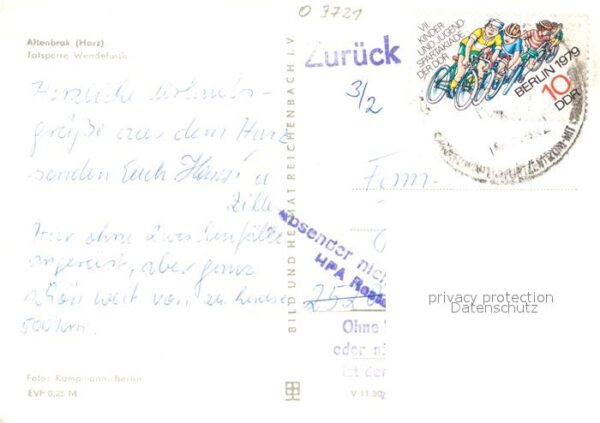 O 3721
Altenbrak (Harz)
Talsperre Wendefurth
Herzliche Urlaubs-
grüße aus dem Harz
senden Euch Hansi u
Zilli
Nur ohne Zwischenfälle
angereist, aber ganz
schön weit von zu Hause
500 km.
Foto: Kampmann, Berlin
EVP 0,25 M
BILD UND HEIMAT REICHENBACH I. V.
V 11 50
Zurück
3/2
VII.
KINDER-
UND JUGEND-
SPARTAKIADE
DER DDR
BERLIN 1979
10
DDR
Fam.
Absender nic
HPA
252
Ohne
oder ni
ist der
privacy protection
Datenschutz